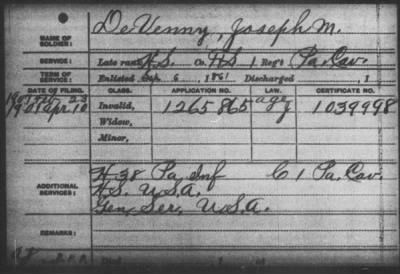 NAME OF SOLDIER: DeVenny, Joseph M.
SERVICE: Late rank H.S. Co. F&S, 1 Reg't Pa. Cav.
TERM OF SERVICE: Enlisted Sep. 6, 1861 Discharged , 1
DATE OF FILING. CLASS. APPLICATION NO. LAW. CERTIFICATE NO.
1901 22
1908 Apr 10 Invalid, 1265865 1039998
Widow,
Minor,
ADDITIONAL SERVICES: H 38 Pa Inf C 1 Pa. Cav.
H.S. U.S.A.
Gen. Ser. U.S.A.
REMARKS: